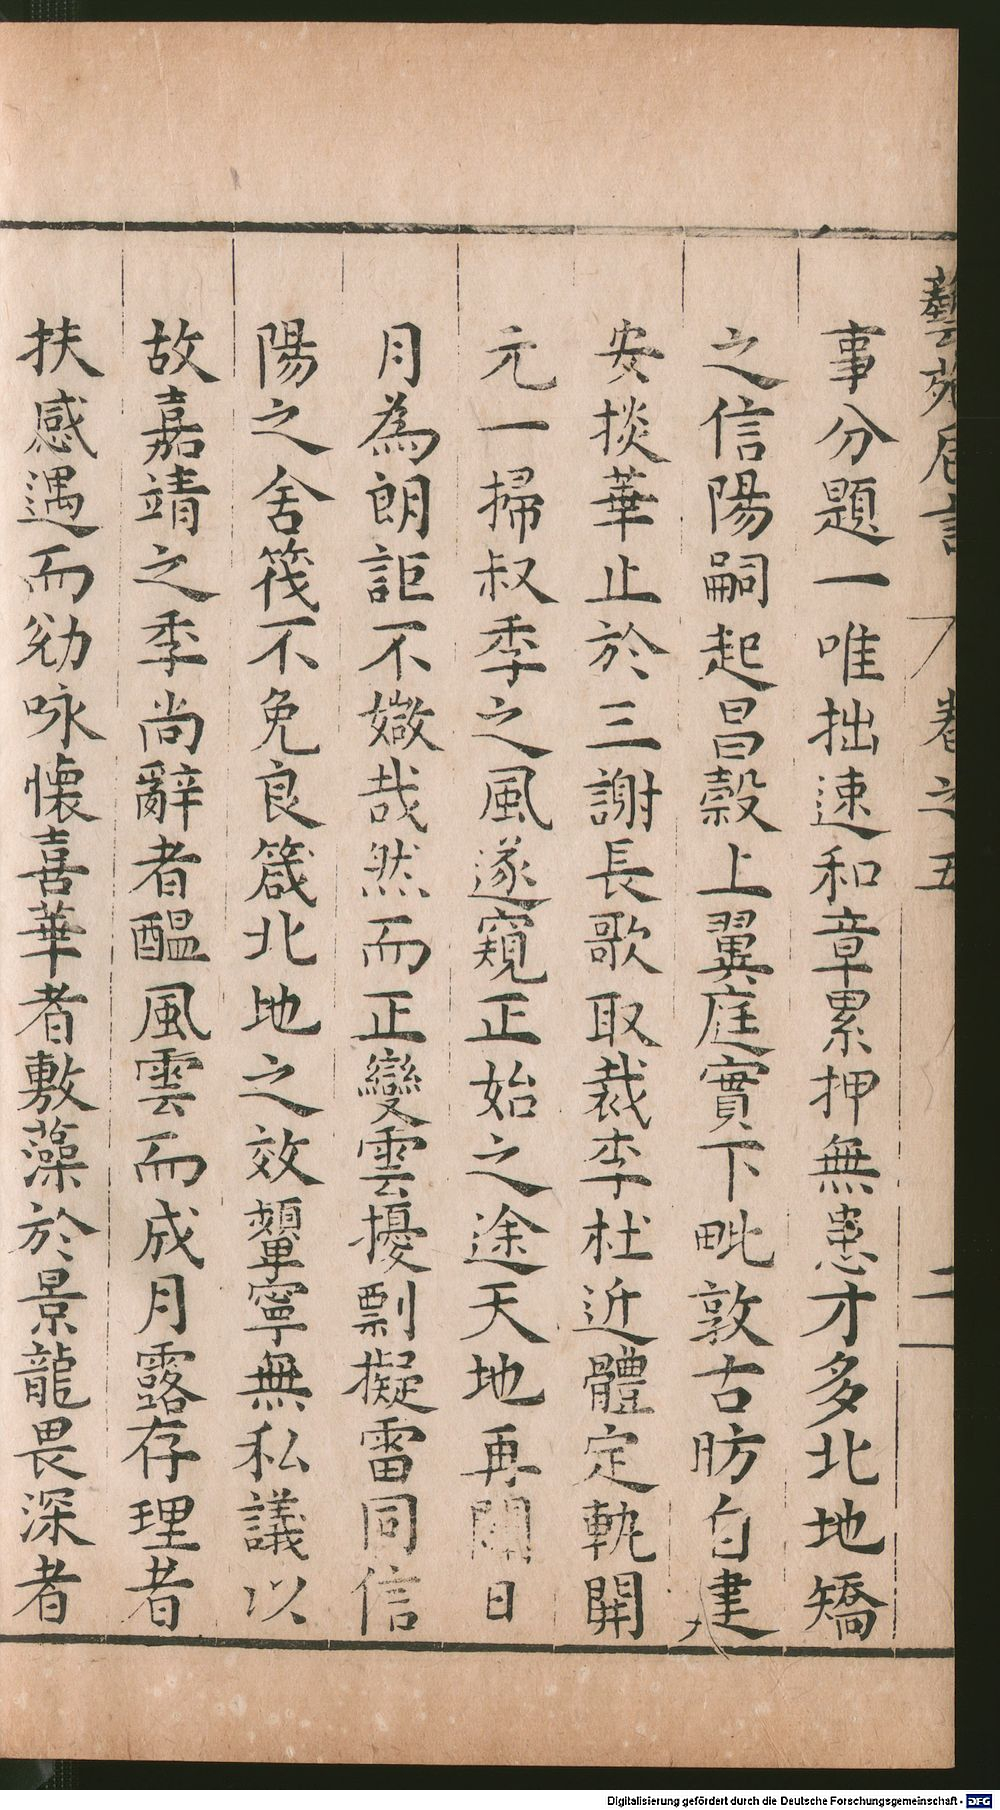 藝苑卮言 卷之五 二
事分題一唯拙速和章累押無患才多北地矯
之信陽嗣起昌榖上翼庭實下毗敦古昉自建
安掞華止於三謝長歌取裁李杜近體定軌開
元一掃叔季之風遂窺正始之途天地再闢日
月為朗詎不媺哉然而正變雲擾剽擬雷同信
陽之舍筏不免良箴北地之效顰寧無私議以
故嘉靖之季尚辭者醞風雲而成月露存理者
扶感遇而𠡠咏懷喜華者敷藻於景龍畏深者
Digitalisierung gefördert durch die Deutsche Forschungsgemeinschaft - DFG